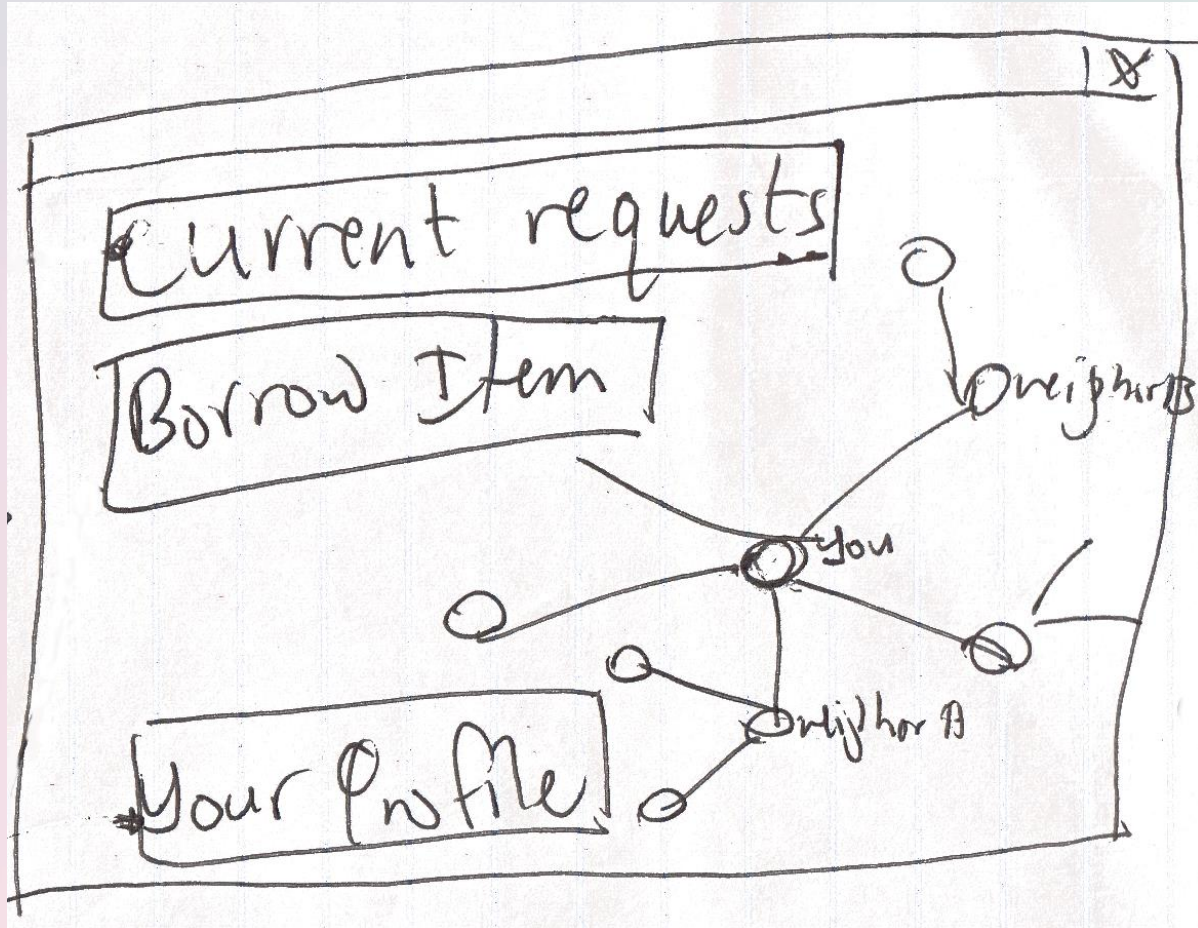 Current requests
Borrow Item
neighor B
You
neighor A
Your Profile